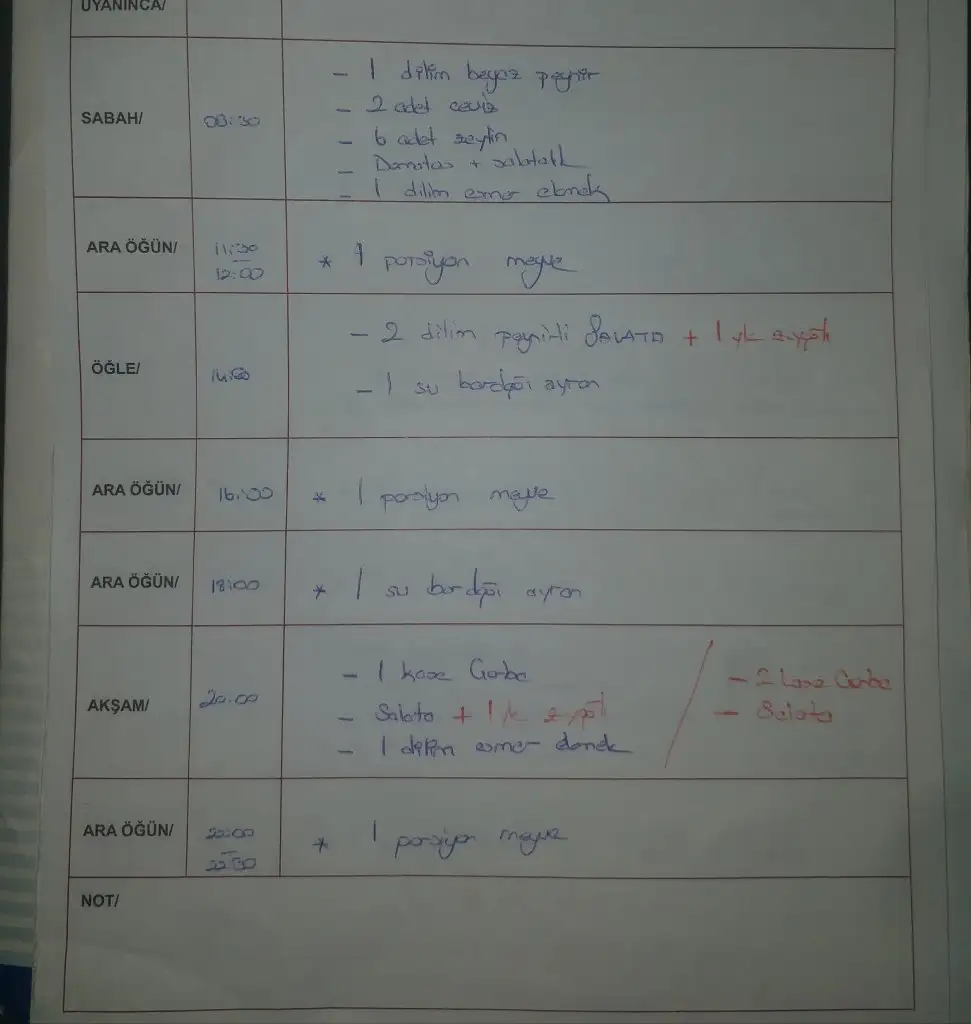 UYANINCA/
SABAH/
08:30
- 1 dilim beyaz peynir
- 2 adet ceviz
- 6 adet zeytin
- Domates + salatalık
- 1 dilim esmer ekmek
ARA ÖĞÜN/
11:30
12:00
* 1 porsiyon meyve
ÖĞLE/
- 2 dilim peynirli SALATA + 1 yk z.yağlı
- 1 su bardağı ayran
ARA ÖĞÜN/
16:00
* 1 porsiyon meyve
ARA ÖĞÜN/
18:00
* 1 su bardağı ayran
AKŞAM/
20:00
- 1 kase Çorba
- Salata + 1 yk z.yağlı
- 1 dilim esmer ekmek
/
- 2 kase Çorba
- Salata
ARA ÖĞÜN/
22:00
22:30
* 1 porsiyon meyve
NOT/